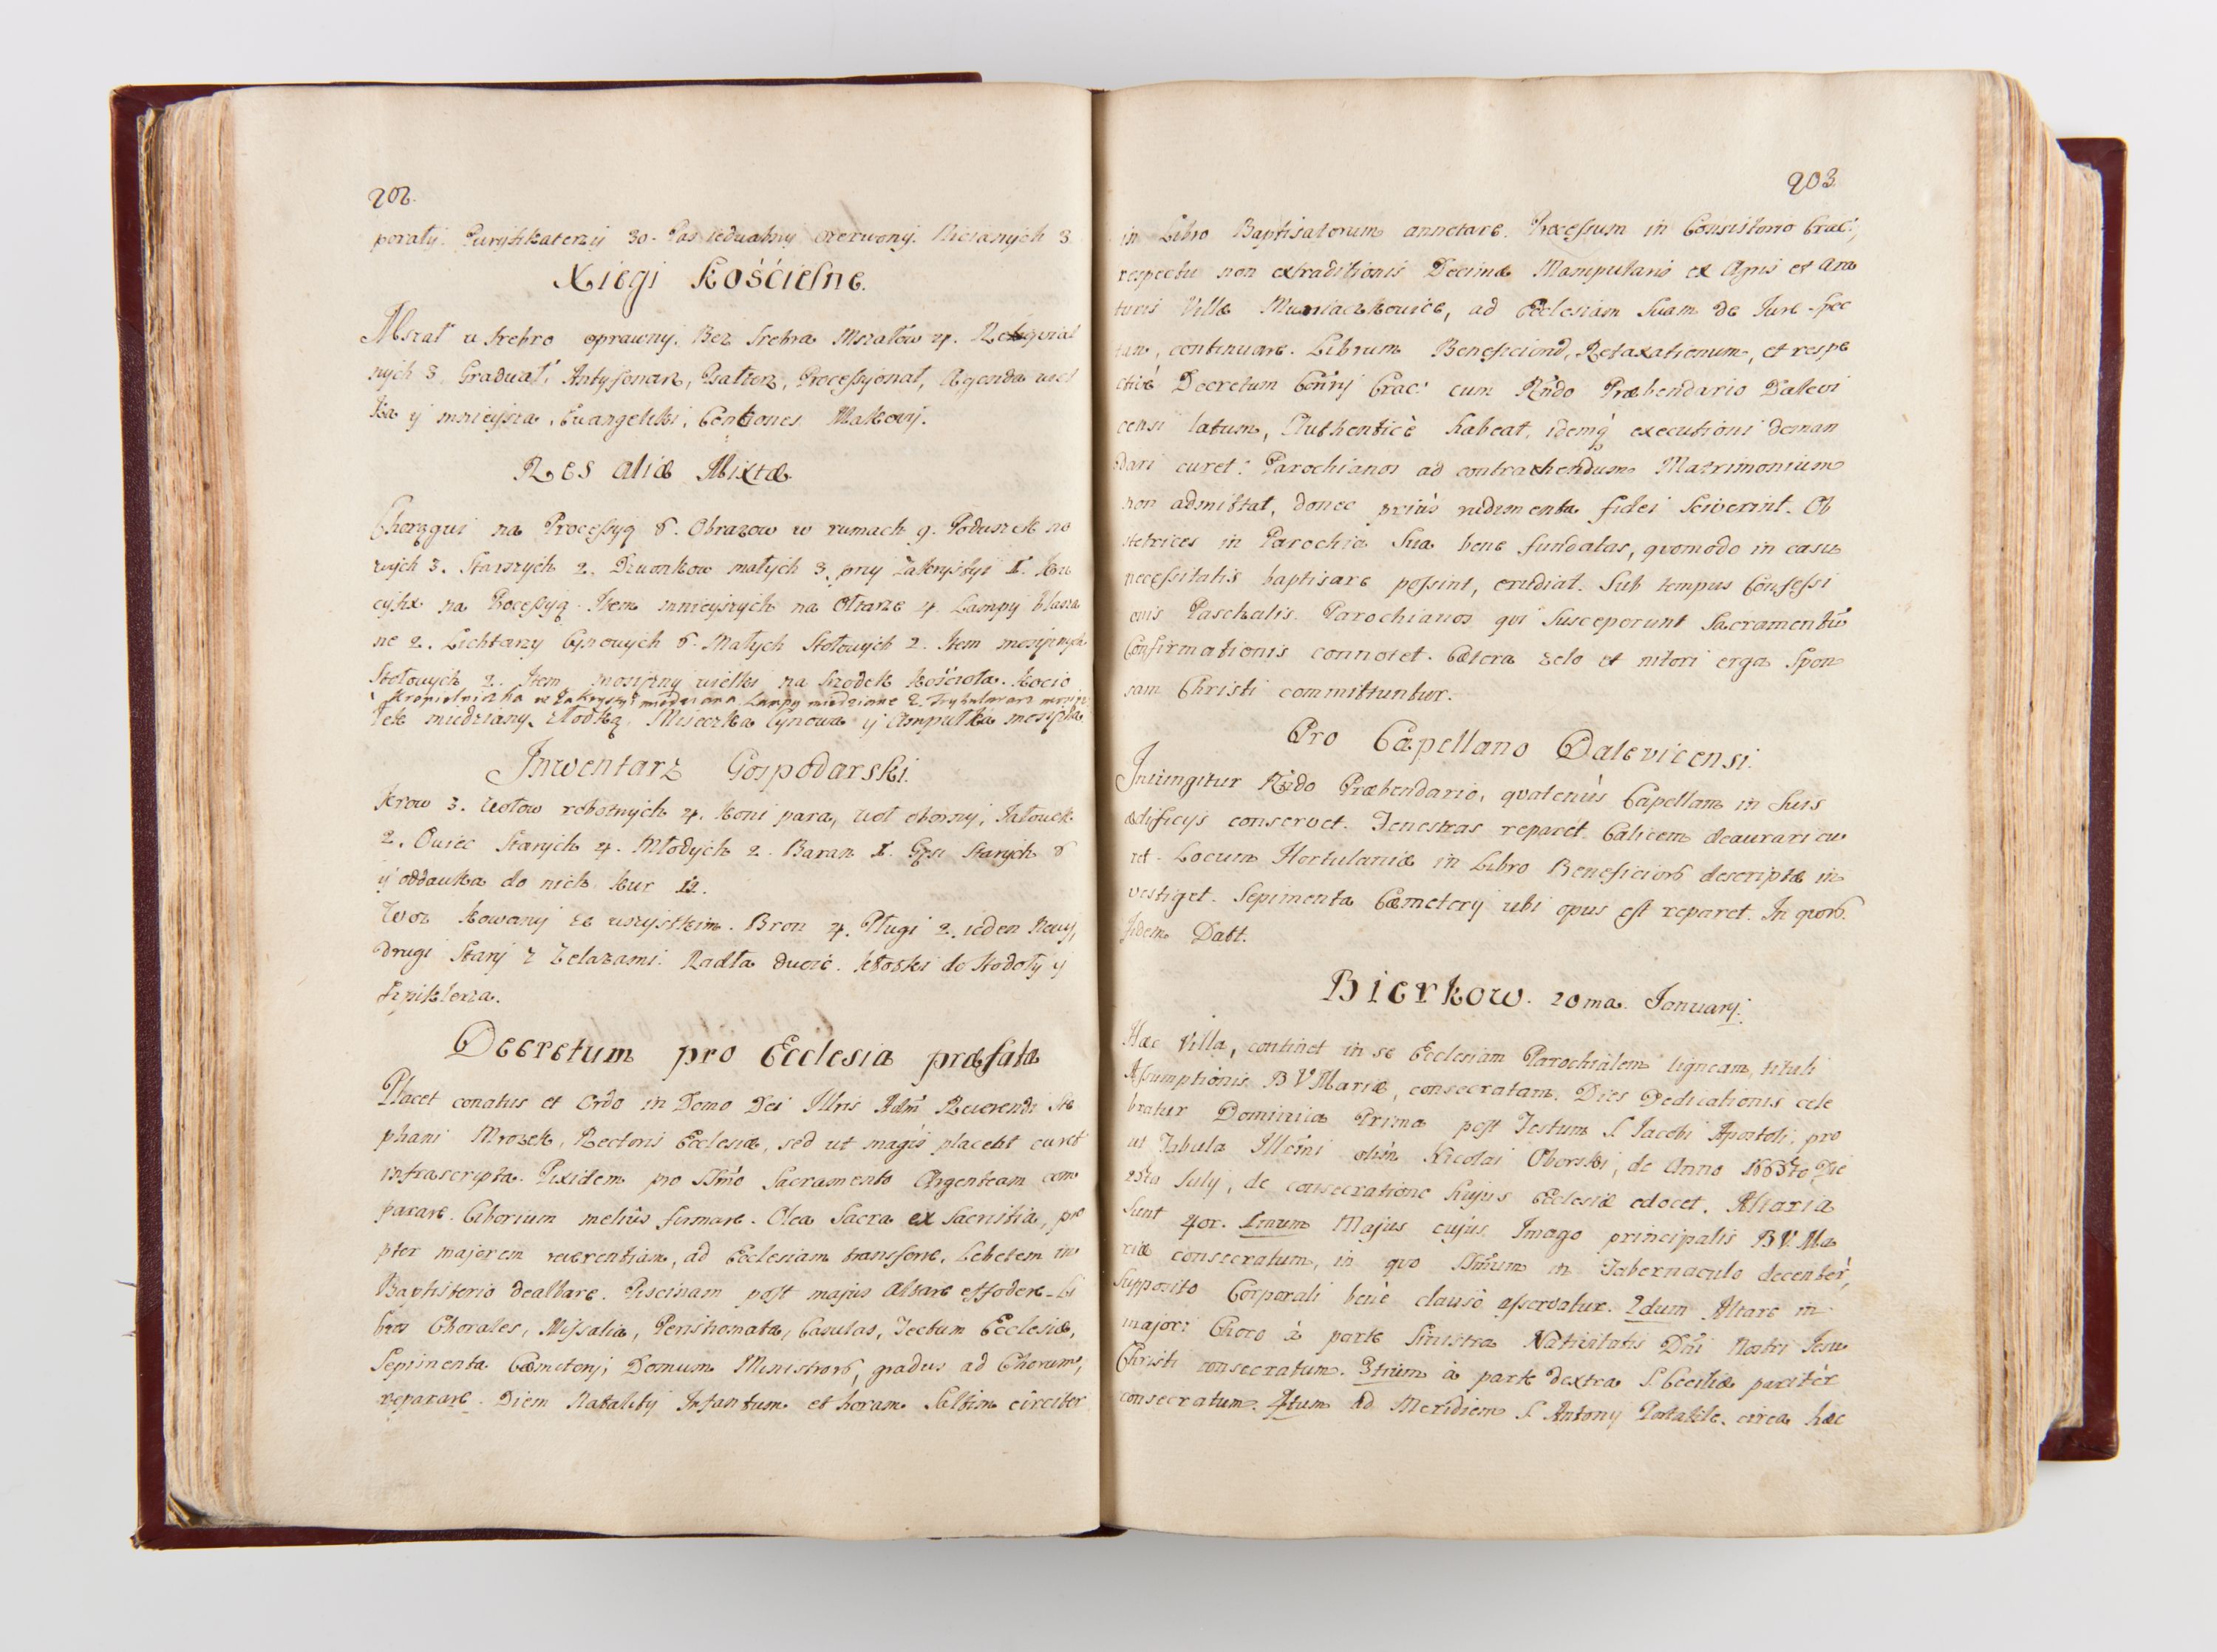 202.
poraly. Puryfikaterzy 30. Pas iedwabny czerwony. Nicianych 3
Xięgi Kościelne.
Mszał w srebro oprawny. Bez srebra Mszałow 4. Requial
nych 3. Graduał, Antyfonarz, Psałterz, Processyonał, Agenda wiel
ka y mnieysza, Ewangeliki, Contiones Makowy.
Res aliæ Mixtæ
Chorągwi na Processyą 6. Obrazow w ramach 9. Poduszek no
wych 3. Starszych 2. Dzwonkow małych 3. przy Zakrystyi 1. Kru
cyfix na Processyą. Item mnieyszych na Ołtarze 4. Lampy blasza
ne 2. Lichtarzy Cynowych 6. Małych Stołowych 2. Item mosiężnych
Stołowych 2. Item mosiężny wielki na srzodek Kościoła. Kocio
Kropielniczka w Zakrystyi miedziana Lampy miedziane 2.
łek miedziany. Miseczka Cynowa y Ampułka
Inwentarz Gospodarski.
Krow 3. Wołow robotnych 4. Koni para, Woł oborny, Jałowek
2. Owiec Starych 4. Młodych 2. Baran 1. Gęsi Starych 6
y oddawka do nich Kur 12.
Woz Kowany ze wszystkim. Bron 4. Pługi 2. ieden Nowy,
drugi Stary z żelazami. Radła dwoie. do Stodoły y
Szpiklerza.
Decretum pro Ecclesia præfata
Placet conatus et Ordo in Domo Dei Illris Adm̃ Reverendi Ste
phani Mrozek, Rectoris Ecclesiæ, sed ut magis placebit curet
infrascripta. Pixidem pro SSm̃o Sacramento Argenteam com
parare. Ciborium melius firmare. Olea Sacra ex Sacristia, pro
pter majorem reverentiam, ad Ecclesiam transferre, Lebetem in
Baptisterio dealbare. Piscinam post majus altare effodere. Li
bros Chorales, Missalia, Casulas, Tectum Ecclesiæ,
Sepimenta Cæmeterij, Domum Ministror, gradus ad Chorum,
reparare. Diem Infantum et horam Saltim circiter
203
in Libro Baptisatorum annotare. Processum in Consistorio Crac:,
respectu non extraditionis Decimæ Manipularis ex Agris et Ara
turis Villæ Muniaczkowice, ad Ecclesiam Suam de Jure Spec
tan, continuare. Librum Beneficiorũ, Retaxationum, et respe
ctivè Decretum Cons̃rij Crac: cum Rñdo Præbendario Dalevi
censi latum, Authenticè habeat, idemq́ executioni deman
dari curet: Parochianos ad contrahendum Matrimonium
non admittat, donec priùs rudimenta fidei sciverint. Ob
stetrices in Parochia Sua bene fundatas, quomodo in casu
necessitatis baptisare possint, erudiat. Sub tempus Confessi
onis Paschalis Parochianos qui Susceperunt Sacramentũ
Confirmationis connotet. Cætera zelo et nitori erga Spon
sam Christi committuntur.
Pro Capellano Dalevicensi.
Iniungitur Rñdo Præbendario, quatenùs Capellam in Suis
ædificijs conservet. Fenestras reparet. Calicem deaurari cu
ret. Locum Hortulaniæ in Libro Beneficior descriptæ in
vestiget. Sepimenta Cæmeterij ubi opus est reparet. In quor
fidem Datt.
Bierkow. 20ma. January.
Hæc Villa, continet in se Ecclesiam Parochialem ligneam, tituli
Assumptionis B V Mariæ, consecratam. Dies Dedicationis cele
bratur Dominica Prima post Festum S. Jacobi Apostoli, pro
ut Tabula Illm̃i olim Nicolai Oborski, de Anno Die
25ta July, de consecratione hujus Ecclesiæ edocet. Altaria
Sunt 4or. 1mum Majus cujus Imago principalis B V. Ma
riæ consecratum, in quo SSm̃um in Tabernaculo decentèr,
supposito Corporali benè clausò asservatur. 2dum Altare in
majori Choro à parte Sinistra Nativitatis Dñi Nostri Jesu
Christi consecratum. 3tium à parte dextra S. Cecíliæ paritèr
consecratum. 4tum Ad Meridiem S. Antonij Portatile. circa hæc